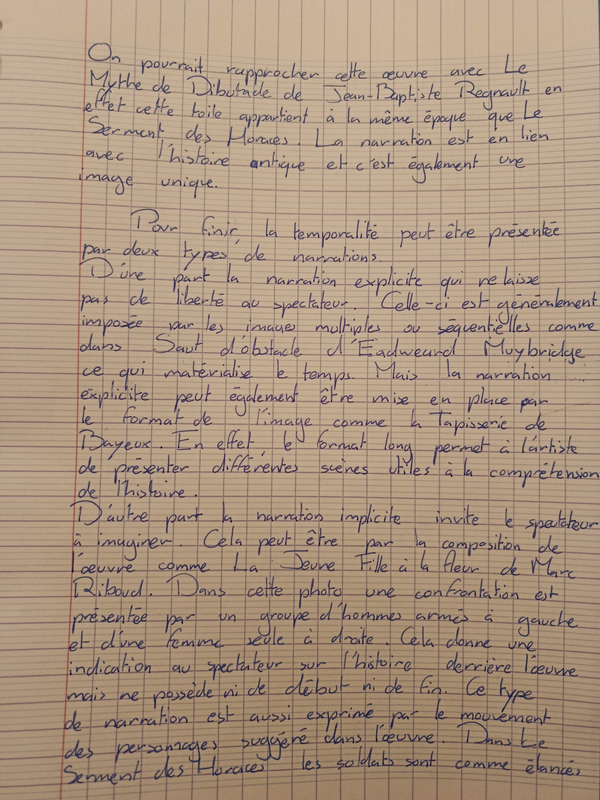 On pourrait rapprocher cette œuvre avec Le
Mythe de Dibutade de Jean-Baptiste Regnault en
effet cette toile appartient à la même époque que Le
Serment des Horaces. La narration est en lien
avec l'histoire antique et c'est également une
image unique.
Pour finir, la temporalité peut être présentée
par deux types de narrations.
D'une part la narration explicite qui ne laisse
pas de liberté au spectateur. Celle-ci est généralement
imposée par les images multiples ou séquentielles comme
dans Saut d'obstacle d'Eadweard Muybridge
ce qui matérialise le temps. Mais la narration
explicite peut également être mise en place par
le format de l'image comme la Tapisserie de
Bayeux. En effet, le format long permet à l'artiste
de présenter différentes scènes utiles à la compréhension
de l'histoire.
D'autre part la narration implicite invite le spectateur
à imaginer. Cela peut être par la composition de
l'œuvre comme La Jeune Fille à la fleur de Marc
Riboud. Dans cette photo une confrontation est
présentée par un groupe d'hommes armés à gauche
et d'une femme seule à droite. Cela donne une
indication au spectateur sur l'histoire derrière l'œuvre
mais ne possède ni de début ni de fin. Ce type
de narration est aussi exprimé par le mouvement
des personnages suggéré dans l'œuvre. Dans Le
Serment des Horaces les soldats sont comme élancés